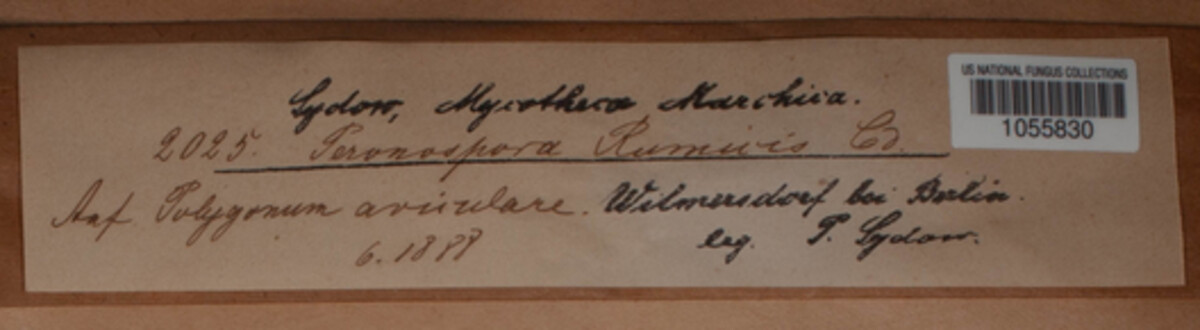 Sydow, Mycotheca Marchica.
2025. Peronospora Rumicis Cd.
Auf Polygonum aviculare. Wilmersdorf bei Berlin.
6. 1888 leg. P. Sydow.
US NATIONAL FUNGUS COLLECTIONS
1055830